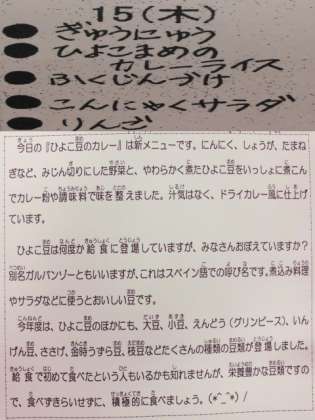 15(木)
● ぎゅうにゅう
● ひよこまめの
カレーライス
● ふくじんづけ
● こんにゃくサラダ
● りんご
今日の『ひよこ豆のカレー』は新メニューです。にんにく、しょうが、たまね
ぎなど、みじん切りにした野菜と、やわらかく煮たひよこ豆をいっしょに煮こん
でカレー粉や調味料で味を整えました。汁気はなく、ドライカレー風に仕上げ
ています。
ひよこ豆は何度か給食に登場していますが、みなさんおぼえていますか?
別名ガルバンゾーともいいますが、これはスペイン語での呼び名です。煮込み料理
やサラダなどに使うとおいしい豆です。
今年度は、ひよこ豆のほかにも、大豆、小豆、えんどう(グリンピース)、いん
げん豆、ささげ、金時うずら豆、枝豆などたくさんの種類の豆類が登場しました。
給食で初めて食べたという人もいるかも知れませんが、栄養豊かな豆類ですの
で、食べずきらいせずに、積極的に食べましょう。(*^_^*)/